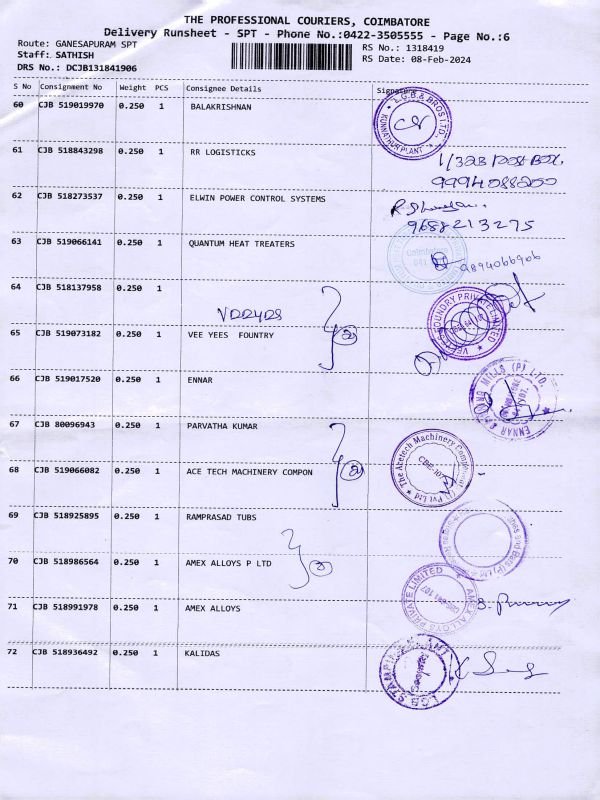 THE PROFESSIONAL COURIERS, COIMBATORE
Delivery Runsheet - SPT - Phone No.:0422-3505555 - Page No.:6
Route: GANESAPURAM SPT
RS No.: 1318419
Staff: SATHISH
RS Date: 08-Feb-2024
DRS No.: DCJB131841906
S No Consignment No Weight PCS Consignee Details Signature
60 CJB 519019970 0.250 1 BALAKRISHNAN
L.G.B.& BROS LTD.
KONNATHUR PLANT
61 CJB 518843298 0.250 1 RR LOGISTICKS
9994088200
62 CJB 518273537 0.250 1 ELWIN POWER CONTROL SYSTEMS
9688213275
63 CJB 519066141 0.250 1 QUANTUM HEAT TREATERS
Coimbatore
9894066906
64 CJB 518137958 0.250 1
FOUNDRY PRIVATE LIMITED
65 CJB 519073182 0.250 1 VEE YEES FOUNTRY
66 CJB 519017520 0.250 1 ENNAR
ENNAR MILLS (P) LTD.
67 CJB 80096943 0.250 1 PARVATHA KUMAR
68 CJB 519066082 0.250 1 ACE TECH MACHINERY COMPON
The Acetech Machinery Components (P) Pvt Ltd
69 CJB 518925895 0.250 1 RAMPRASAD TUBS
70 CJB 518986564 0.250 1 AMEX ALLOYS P LTD
71 CJB 518991978 0.250 1 AMEX ALLOYS
AMEX ALLOYS PRIVATE LIMITED
72 CJB 518936492 0.250 1 KALIDAS
L.G.B STAMPING PLANT